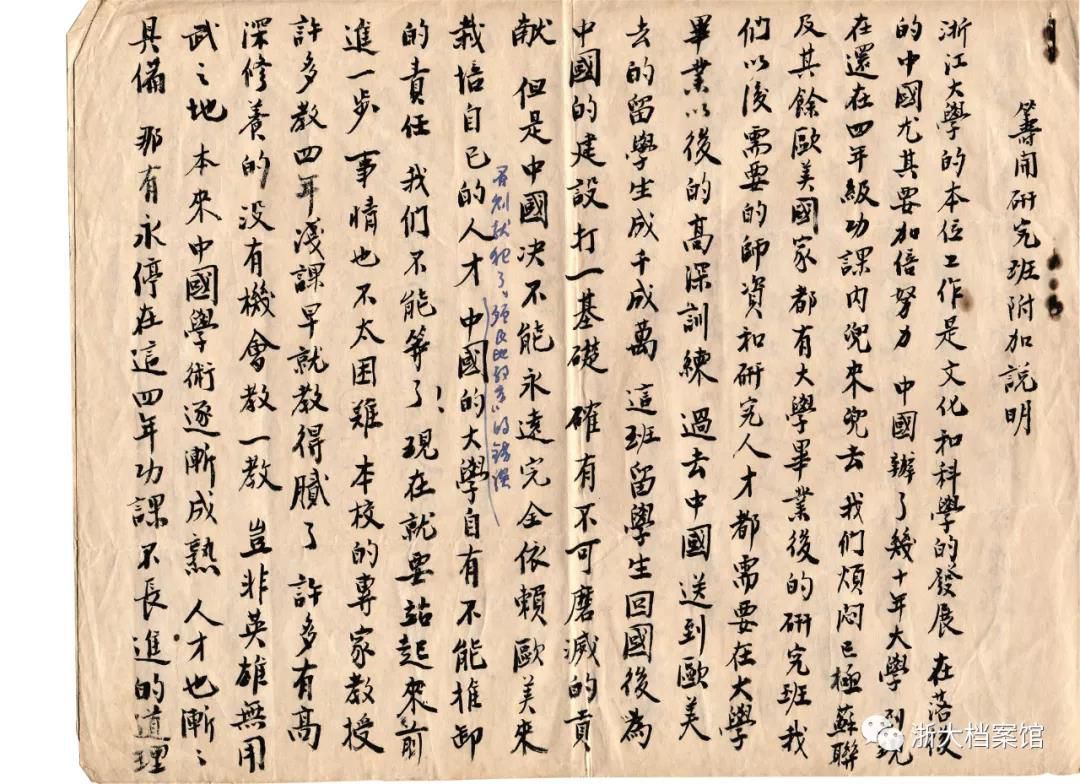 籌開研究班附加説明
浙江大學的本位工作是文化和科學的發展 在落後
的中國尤其要加倍努力 中國辦了幾十年大學 到現
在還在四年級功課内兜來兜去 我们煩悶已極 蘇聯
及其餘歐美國家都有大學畢業後的研究班 我
們以後需要的師資和研究人才都需要在大學
畢業以後的高深訓練 過去中國送到歐美
去的留學生成千成萬 這班留學生回國後為
中國的建設打一基礎 確有不可磨滅的貢
献 但是中國决不能永遠完全依賴歐美來
栽培自己的人才 中國的大學自有不能推卸
否則就犯了殖民地教育的錯誤
的責任 我们不能等了！現在就要站起來前
進一步 事情也不太困難 本校的專家教授
許多教四年淺課早就教得膩了 許多有高
深修養的没有機會教一教 豈非英雄無用
武之地 本來中國學術逐漸成熟 人才也漸々
具備 那有永停在這四年功課不長進的道理
浙大档案馆